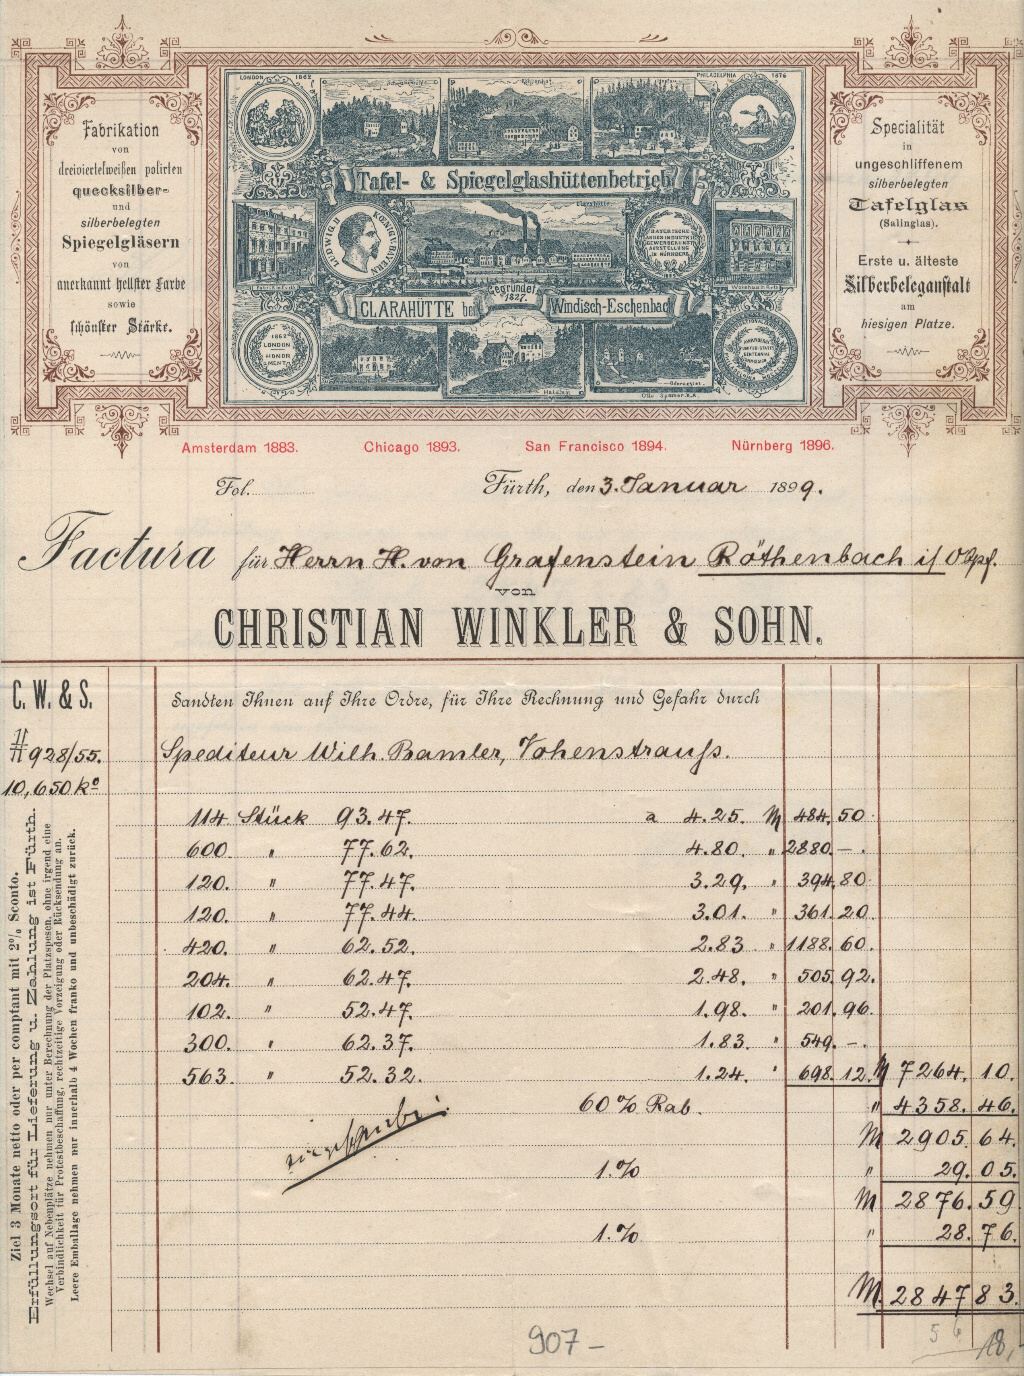 Fabrikation
von
dreiviertelweißen polirten
quecksilber-
und
silberbelegten
Spiegelgläsern
von
anerkannt hellster Farbe
sowie
schönster Stärke.
LONDON 1862
PHILADELPHIA 1876
Tafel- & Spiegelglashüttenbetrieb
Clarahütte
LUDWIG II KOENIG V. BAYERN
BAYERISCHE
LANDES INDUSTRIE
GEWERBE KUNST
AUSSTELLUNG
IN NÜRNBERG
gegründet
1827.
CLARAHÜTTE bei Windisch-Eschenbach
1862
LONDON
HONOR
MENT
Specialität
in
ungeschliffenem
silberbelegten
Tafelglas
(Salinglas).
Erste u. älteste
Silberbeleganstalt
am
hiesigen Platze.
Amsterdam 1883. Chicago 1893. San Francisco 1894. Nürnberg 1896.
Fol. Fürth, den 3. Januar 1899.
Factura für Herrn H. von Grafenstein Röthenbach i/ Obpf.
von
CHRISTIAN WINKLER & SOHN.
C. W. & S. Sandten Ihnen auf Ihre Ordre, für Ihre Rechnung und Gefahr durch
# 928/55. Spediteur Wilh. Bamler, Vohenstrauss.
10,650 Ko
114 Stück 93.47. a 4.25. M 484.50
600 " 77.62. 4.80. " 2880.—.
120. " 77.47. 3.29. " 394.80
120. " 77.44. 3.01. " 361.20.
420. " 62.52. 2.83 " 1188.60.
204. " 62.47. 2.48. " 505.92.
102. " 52.47. 1.98. " 201.96.
300. " 62.37. 1.83. " 549.—.
563. " 52.32. 1.24. " 698.12. M 7264.10.
60% Rab. " 4358.46.
M 2905.64
1.% " 29.05.
M 2876.59
1.% " 28.76.
M. 2847.83.
907 –
Ziel 3 Monate netto oder per comptant mit 2% Sconto.
Erfüllungsort für Lieferung u. Zahlung ist Fürth.
Wechsel auf Nebenplätze nehmen nur unter Berechnung der Platzspesen, ohne irgend eine
Verbindlichkeit für Protestbeschaffung, rechtzeitige Vorzeigung oder Rücksendung an.
Leere Emballage nehmen nur innerhalb 4 Wochen franko und unbeschädigt zurück.